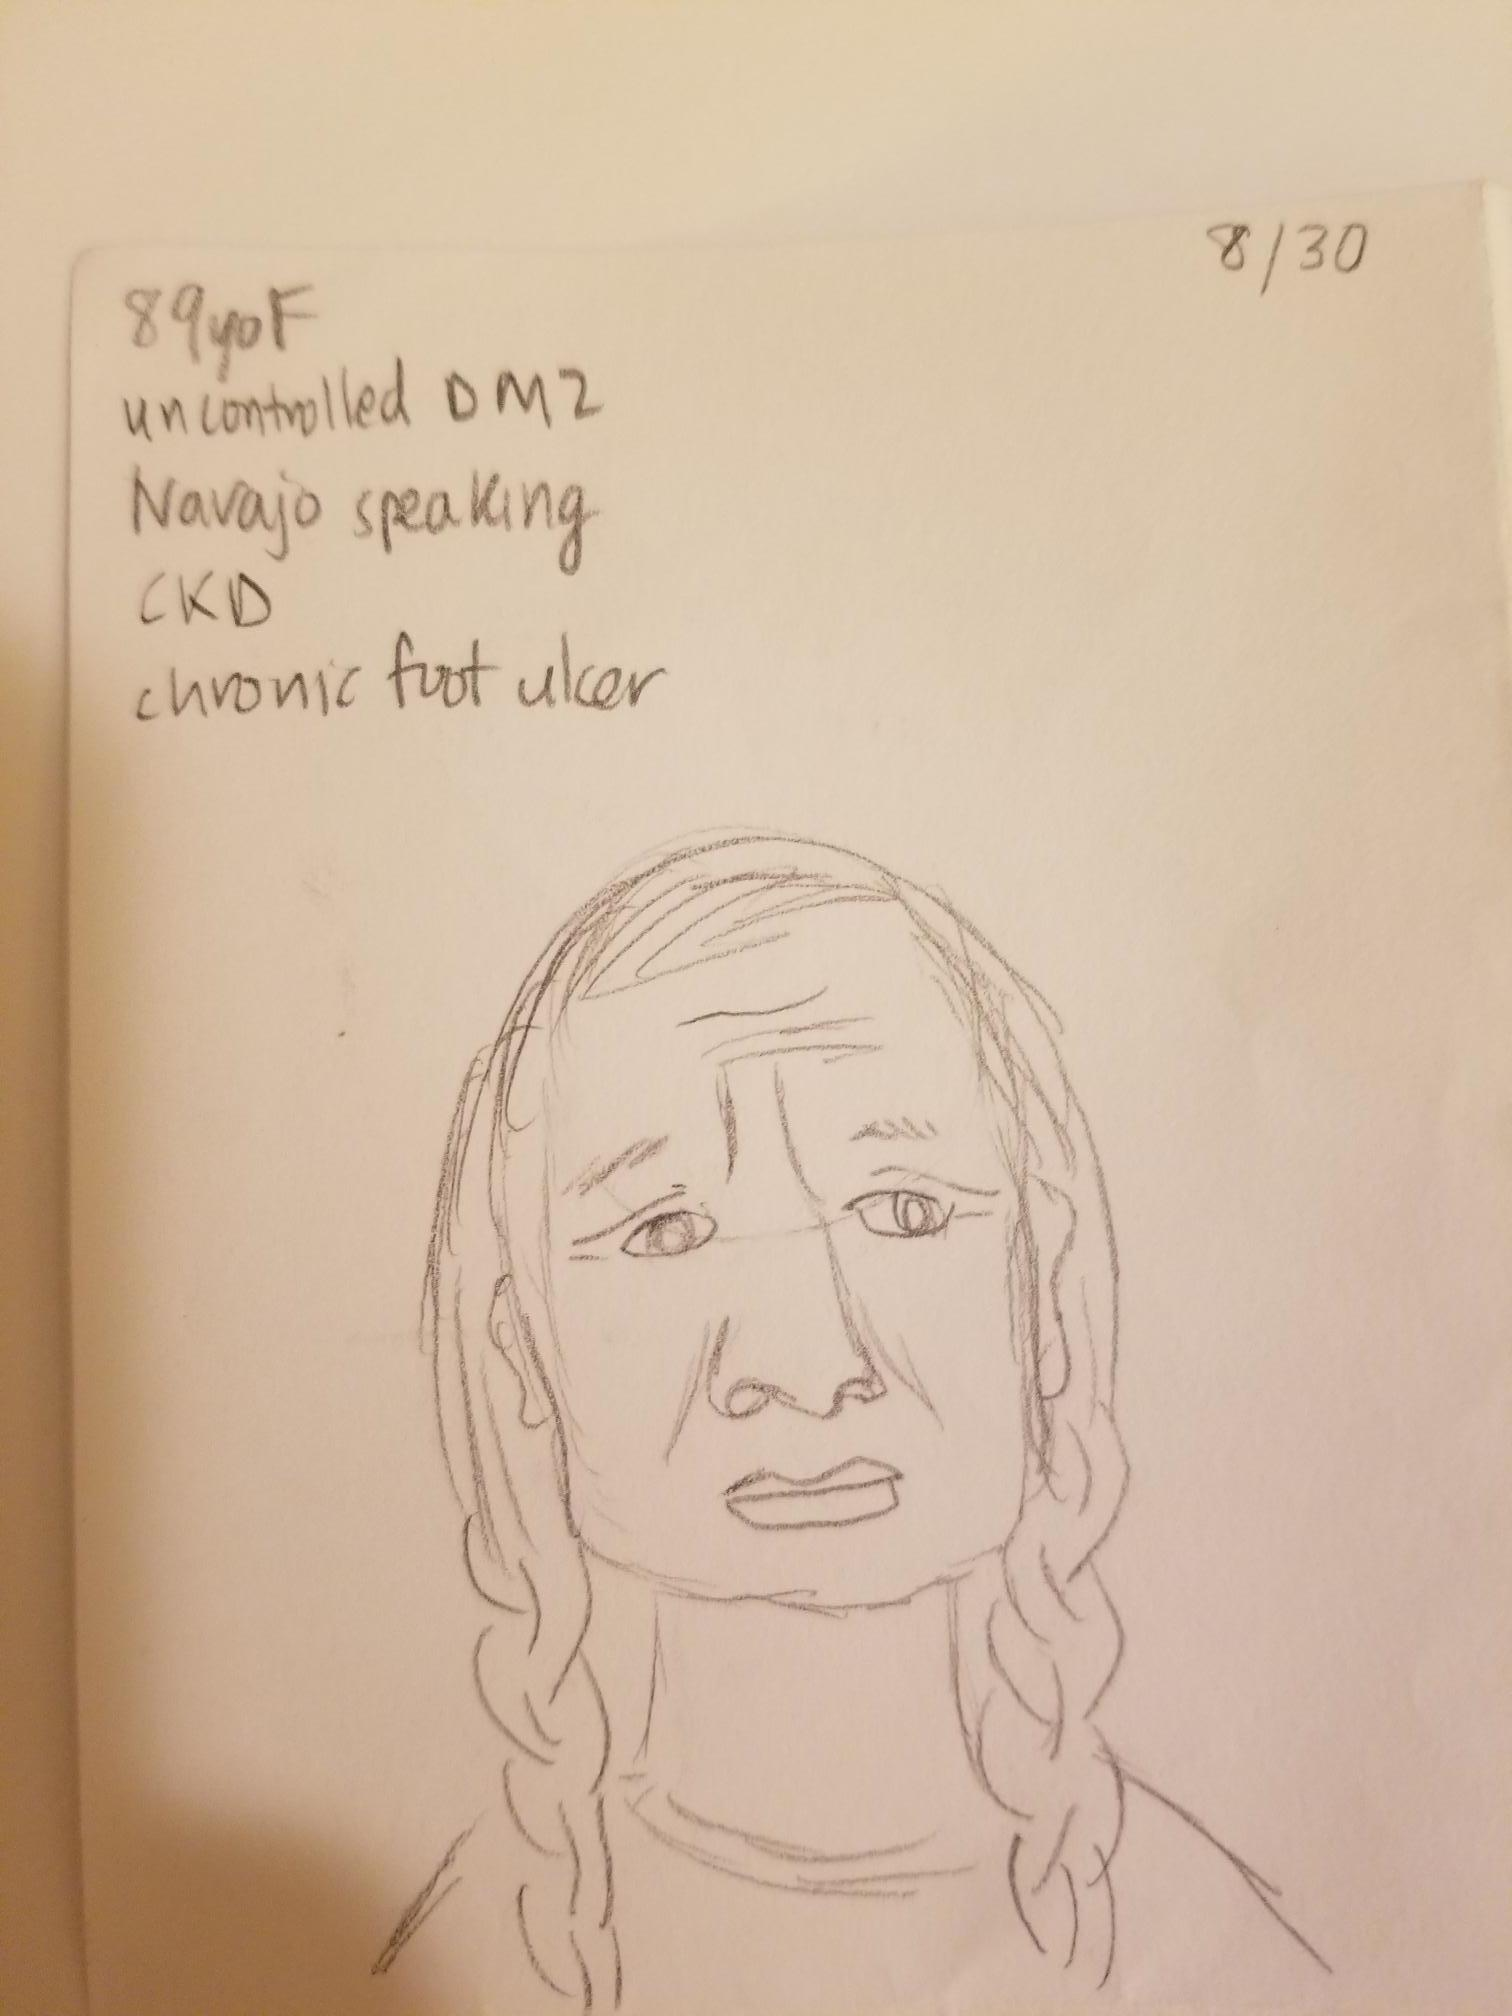 8/30
89yoF
uncontrolled DM2
Navajo speaking
CKD
chronic foot ulcer